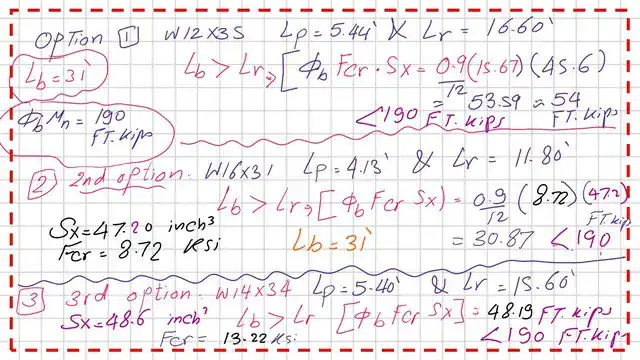 Option 1 W12X35 Lp=5.44' & Lr = 16.60'
Lb=31' Lb > Lr → [ΦbFcr.Sx = 0.9/12 (15.67)(45.6)
ΦbMn = 190 FT.kips = 53.59 ≈ 54 FT.kips
<190 FT.kips
2 2nd option. W16X31 Lp=4.13' & Lr = 11.80'
Lb > Lr → [Φb Fcr Sx) = 0.9/12 (8.72)(47.2)
Sx=47.20 inch³ FT.kips
Fcr = 8.72 Ksi Lb=31' = 30.87 <190
3 3rd option. W14X34 Lp=5.40' & Lr = 15.60'
Sx=48.6 inch³ Lb > Lr [ΦbFcr Sx] = 48.19 FT.kips
Fcr = 13.22 Ksi <190 FT.kips